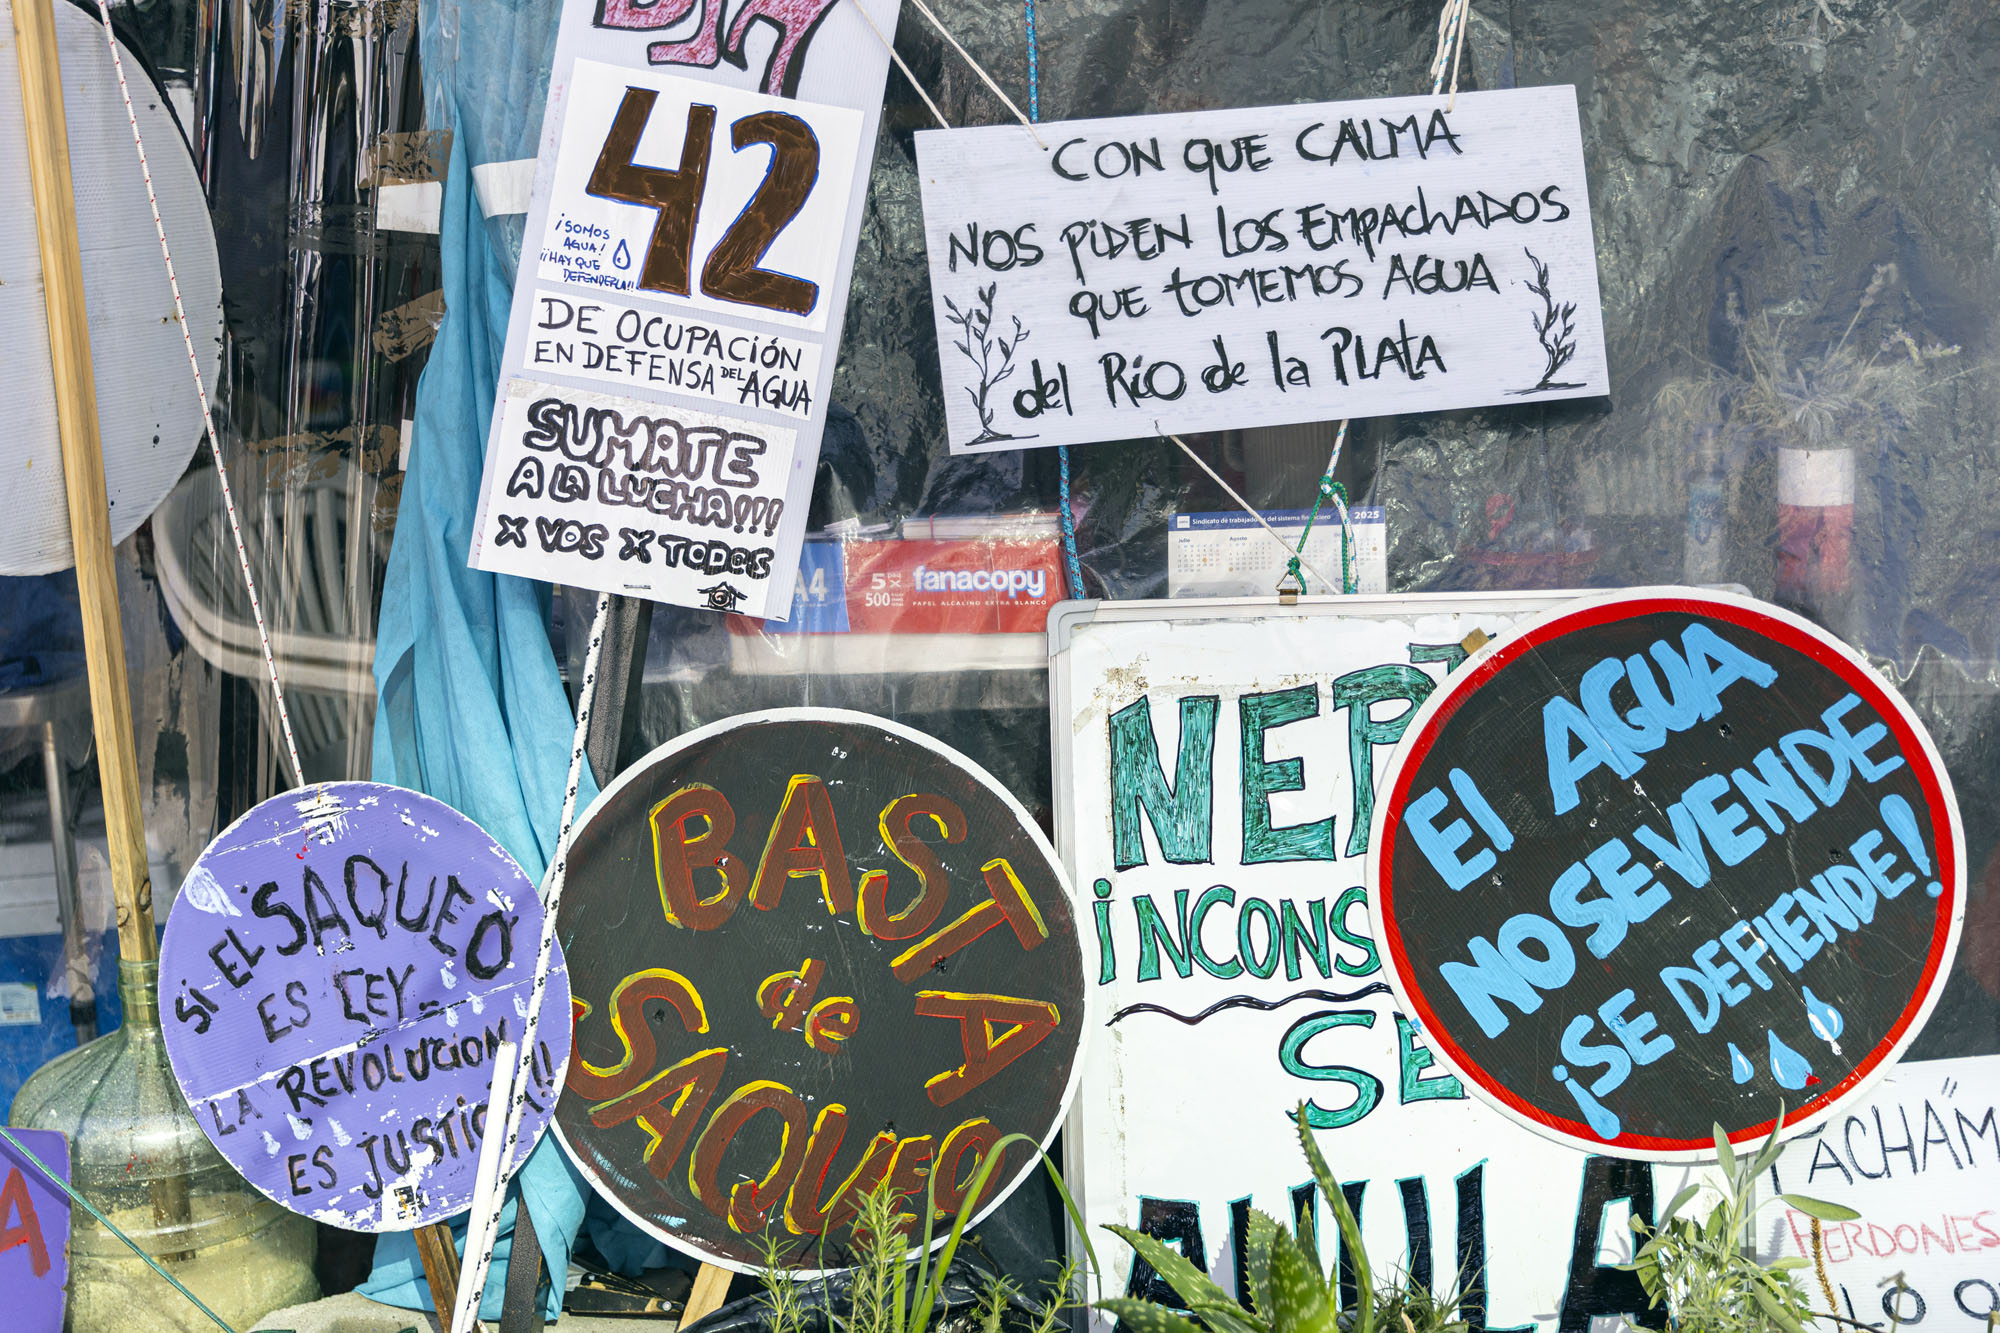 DIA
42
¡SOMOS
AGUA!
¡¡HAY QUE
DEFENDERLA!!
DE OCUPACIÓN
EN DEFENSA DEL AGUA
SUMATE
A LA LUCHA!!!
X VOS X TODOS
CON QUE CALMA
NOS PiDEN LOS EMPACHADOS
QUE tOMEMOS AGUA
del Río de la PLATA
A4
5 x
500
fanacopy
PAPEL ALCALINO EXTRA BLANCO
Sindicato de trabajadores del sistema financiero
2025
Julio
Agosto
SI EL SAQUEO
ES LEY_
LA REVOLUCION
ES JUSTICIA!!
BASTA
de
SAQUEO
BASTA
NEPT
iNCONS
SE
ANULA
El AGUA
NO SE VENDE
¡SE DEFIENDE!
PACHAM
PERDONES
LO Q
A